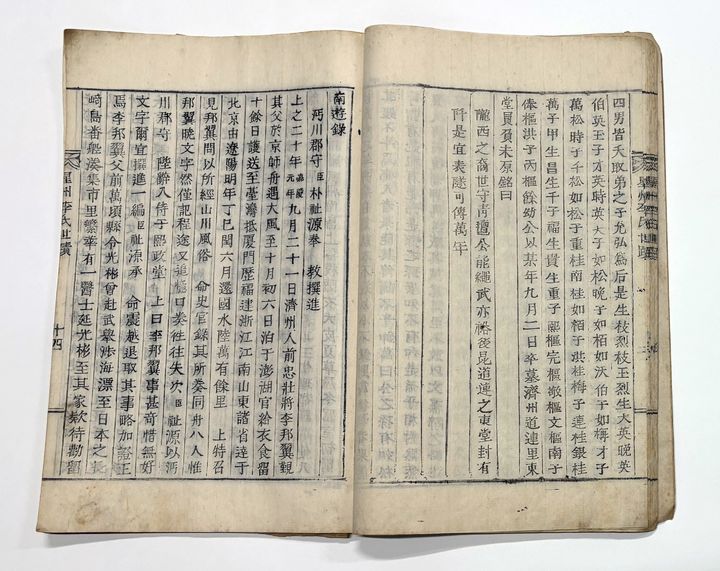 星州李氏世蹟
四男皆夭取弟之子允弘爲后是生枝烈枝王烈生大英晩英
伯英王子才英時英大子如松晩子如栢如沃伯子如梅才子
萬松時子千松如松子重桂南桂如栢子洪桂梅子蓮桂銀桂
萬子甲生昌生千子福生貴生重子熙樞完樞敬樞文樞南子
俸樞洪子丙樞餘幼公以某年九月二日卒墓濟州道連里東
堂員負未原銘曰
隴西之裔世守靑氊公能繩武亦裕後昆道連之東堂封有
阡是宜表隧可傳萬年
南遊錄
沔川郡守臣朴祉源奉 教撰進
上之二十年嘉慶元年九月二十一日濟州人前忠壯將李邦翼覲
其父於京師舟遇大風至十月初六日泊于澎湖官給衣食留
十餘日護送至臺灣抵厦門歷福建浙江江南山東諸省達于
北京由遼陽明年丁巳閏六月還國水陸萬有餘里 上特召
見邦翼問以所經山川風俗 命史官錄其所奏同舟八人惟
邦翼曉文字然僅記程途又追口奏往往失次臣祉源以沔
川郡守 陛辭入侍于熙政堂 上曰李邦翼事甚奇惜無好
文字爾宜撰進一編臣祉源承 命震越退取其事略加證正
焉李邦翼父前萬頃縣令光彬曾赴武擧涉海漂至日本之長
崎島番舶湊集市里繁華有一醫士延光彬至其家欵待勸留
星州李氏世蹟 十四